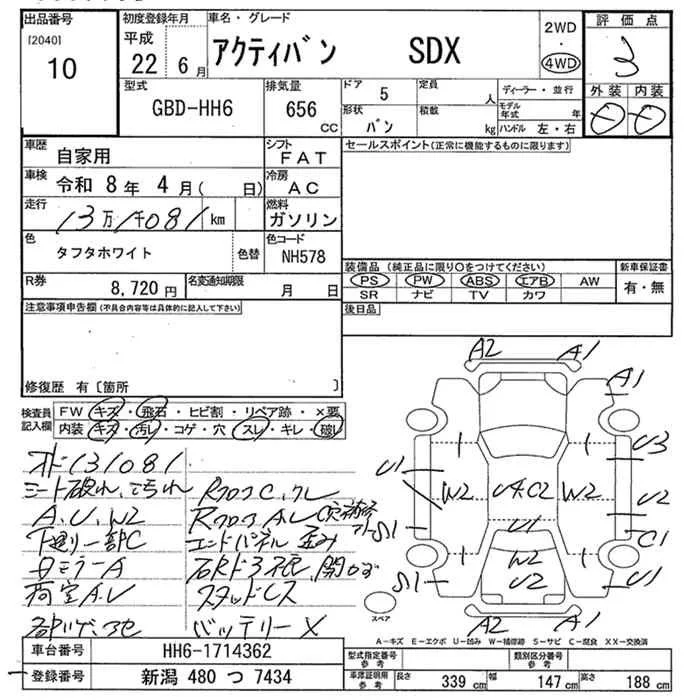 出品番号 初度登録年月 車名・グレード 2WD 評価点
[2040] 平成 アクティバン SDX ・ 3
10 22年 6月 4WD 外装 内装
型式 排気量 ドア 5 定員 人 ディーラー・並行
GBD-HH6 656 cc 形状 バン 積数 kg モデル年式 年
ハンドル 左・右
車歴 自家用 シフト FAT セールスポイント(正常に機能するものに限ります)
車検 令和 8年 4月( 日) 冷房 AC
走行 13万1千081km 燃料 ガソリン
色 タフタホワイト 色替 色コード NH578
装備品 (純正品に限り○をつけてください) 新車保証書
R券 8,720円 名変通知期限 月 日 PS PW ABS エアB AW 有・無
SR ナビ TV カワ
注意事項申告欄(不具合内容等は具体的に記入して下さい) 後日品
修復歴 有〔箇所 〕
検査員記入欄 FW キズ・飛石・ヒビ割・リペア跡・×要
内装 キズ・汚レ・コゲ・穴・スレ・キレ・破レ
A2 A1
A1
オド131081
シート破れ、汚れ
A.U.W2
下廻り一部C
荷室A.U
スタッドレス
バッテリーX
U1 U3
W2 U4.C2 W2 U2
S1 U1 C1
S1 W2 U1
U2
A2 A1
スペア
A-キズ E-エクボ U-凹み W-補修跡 S-サビ C-腐食 XX-交換済
車台番号 HH6-1714362 型式指定番号 参考 類別区分番号 参考
登録番号 新潟 480 つ 7434 車庫証明用 参考 長さ 339cm 幅 147cm 高さ 188cm